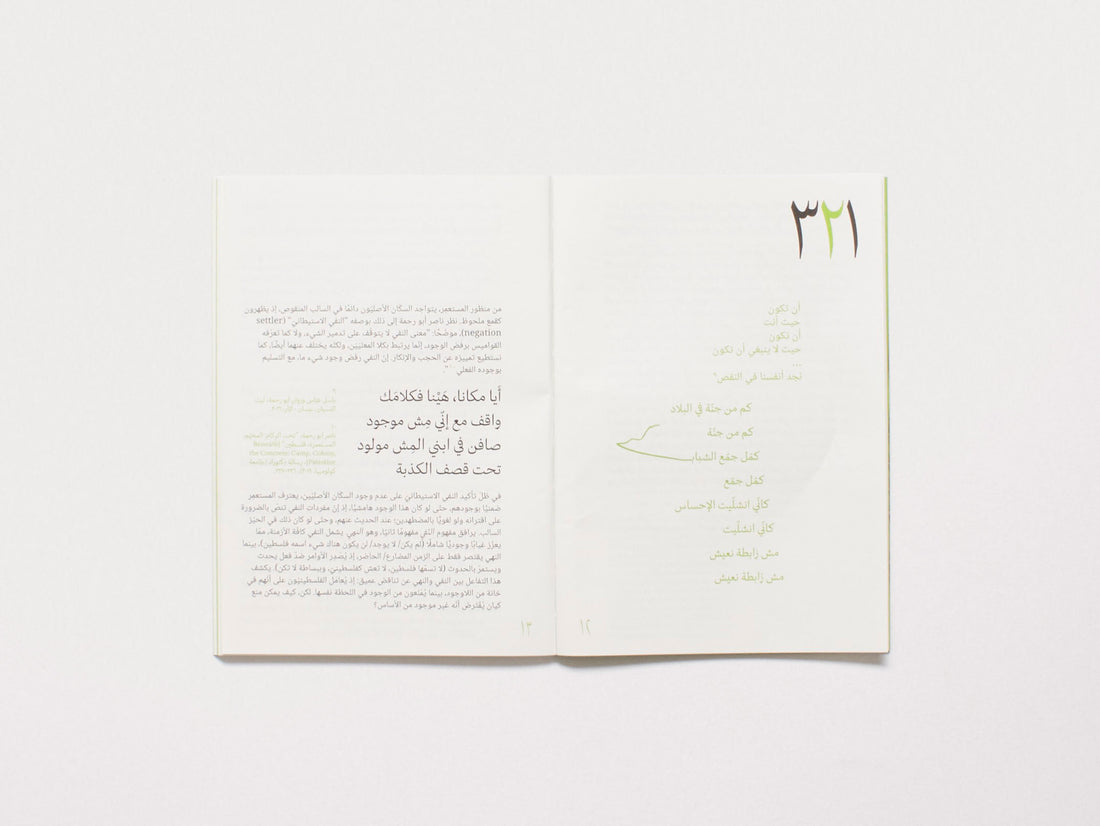 ١٢٣
أن تكون
حيث أنت
أن تكون
حيث لا ينبغي أن تكون
...
نجد أنفسنا في النقص؟
كم من جثة في البلاد
كم من جثة
كمّل جمّع الشباب
كمّل جمّع
كأنّي انشلّيت الإحساس
كأنّي انشلّيت
مش زابطة نعيش
مش زابطة نعيش
١٢
من منظور المستعمِر، يتواجد السكّان الأصليّون دائمًا في السالب المنقوص، إذ يظهرون
كقمع ملحوظ. نظر ناصر أبو رحمة إلى ذلك بوصفه "النفي الاستيطانيّ" (settler
negation)، موضحًا: "معنى النفي لا يتوقّف على تدمير الشيء، ولا كما تعرّفه
القواميس برفض الوجود، إنّما يرتبط بكلا المعنيَين، ولكنّه يختلف عنهما أيضًا، كما
نستطيع تمييزه عن الحجب والإنكار. إن النفي رفض وجود شيء ما، مع التسليم
بوجوده الفعلي".
أيا مكانا، هَيْنا فكلامَك
واقف مع إنّي مِش موجود
صافن في ابني المِش مولود
تحت قصف الكذبة
٩
باسل عباس وروان أبو رحمة،
نيسان - أيّار، ٢٠٢١.
١٠
ناصر أبو رحمة، "تحت الركام
المستعمرة، فلسطين" (Beneath
the Concrete: Camp, Colony,
Palestine)، رسالة دكتوراة (جامعة
كولومبيا،
في ظلّ تأكيد النفي الاستيطانيّ على عدم وجود السكّان الأصليّين، يعترف المستعمِر
ضمنيًا بوجودهم، حتى لو كان هذا الوجود هامشيًا، إذ إنّ مفردات النفي تنصّ بالضرورة
على اقترانه ولو لغويًا بالمضطهدين؛ عند الحديث عنهم، وحتى لو كان ذلك في الحيّز
السالب. يرافق مفهوم النفي مفهومًا ثانيًا، وهو النهي. يشمل النفي كافّة الأزمنة، ممّا
يعزّز غيابًا وجوديًا شاملًا (لم يكن/ لا يوجد/ لن يكون هناك شيء اسمه فلسطين)، بينما
النهي يقتصر فقط على الزمن المضارع/ الحاضر، إذ يُصدِر الأوامر ضدّ فعل يحدث
ويستمرّ بالحدوث (لا تسمّها فلسطين، لا تعش كفلسطينيّ، وببساطة لا تكن). يكشف
هذا التفاعل بين النفي والنهي عن تناقض عميق: إذ يُعامل الفلسطينيّون على أنّهم في
خانة من اللاوجود، بينما يُمنعون من الوجود في اللحظة نفسها. لكن، كيف يمكن منع
كيان يُفترض أنّه غير موجود من الأساس؟
١٣